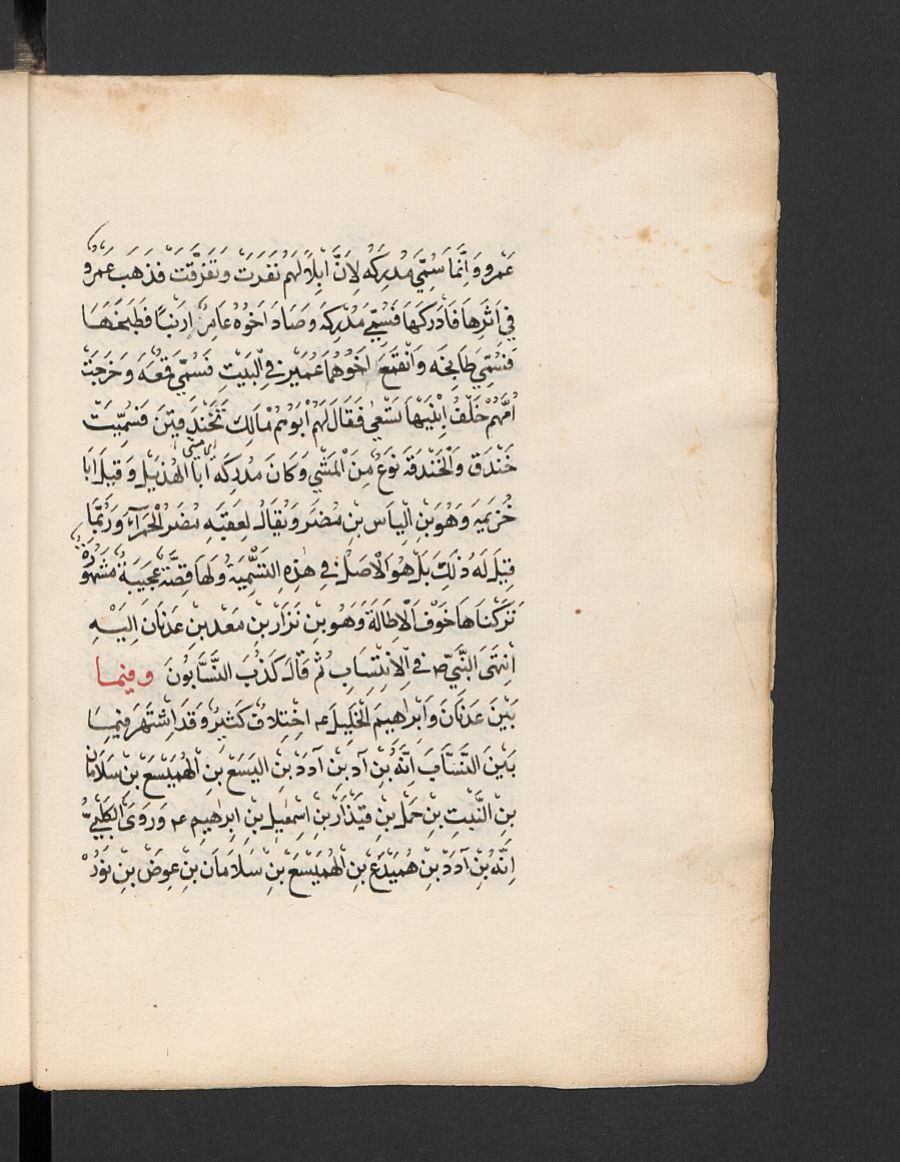 عَمرو وَاِنَّمَا سُمِّيَ مُدرِكَه لِاَنَّ اِبِلًا لَهُم نَفَرَت وَتَفَرَّقَت فَذَهَبَ عَمرو
في اَثَرِهَا فَاَدرَكَهَا فَسُمِّيَ مُدرِكَه وَصَادَ اَخُوهُ عَامِرٌ اَرنَبًا فَطَبَخَهَا
فَسُمِّيَ طَابِخَه وَانقَمَعَ اَخُوهُمَا عُمَير في البَيتِ فَسُمِّيَ قَمعَه وَخَرَجَت
اُمُّهُم خَلفَ اِبنَيهَا تَسعَى فَقَالَ لَهُم اَبُوهُم مَالَكِ تَخَندَفِينَ فَسُمِّيَت
خندَق وَالخَندَقَه نَوعٌ مِنَ المَشيِ وَكَانَ مُدرِكَه اَبَا الهُذَيل وَقِيلَ اَبَا
خُزَيمَه وَهُوَ بنِ اِليَاس بنِ مُضَر وَيُقَالُ لِعَقِبَهِ مُضَرُ الحَمرَآءِ وَرُبَّمَا
قِيلَ لَهُ ذٰلِكَ بَل هُوَ الاَصلُ في هٰذِهِ التَّسمِيَةِ وَلَهَا قِصَّةٌ عَجِيبَةٌ مَشهُورَةٌ
تَرَكنَاهَا خَوفَ الاِطَالَةَ وَهُوَ بن نَزَار بنِ مَعَد بنِ عَدنَانَ اِلَيهِ
اِنتَهَى النَّبِيّ صم في الاِنتِسَابِ ثُم قَالَ كَذَبَ النَّسَّابُونَ وفيما
بَينَ عَدنَانَ وَاِبرَاهِيمَ الخَلِيلَ عم اِختِلَافٌ كَثِيرٌ وَقَد اِشتَهَرَ فِيمَا
بَينَ النَّسَّابَ اِنَّهُ بن آد بنِ آدَد بنِ اليَسَع بنِ الهُمَيسَع بن سَلَامَان
بنِ النَّبت بنِ حَمَل بنِ قَيذَار بنِ اِسمٰعِيل بنِ اِبرٰهِيم عم وَرَوَى الكَلبِيُّ
اِنَّهُ بن آدَد بنِ هُمَيدَع بنِ الهُمَيسَع بنِ سَلَامَان بنِ عِوَض بنِ نَوز